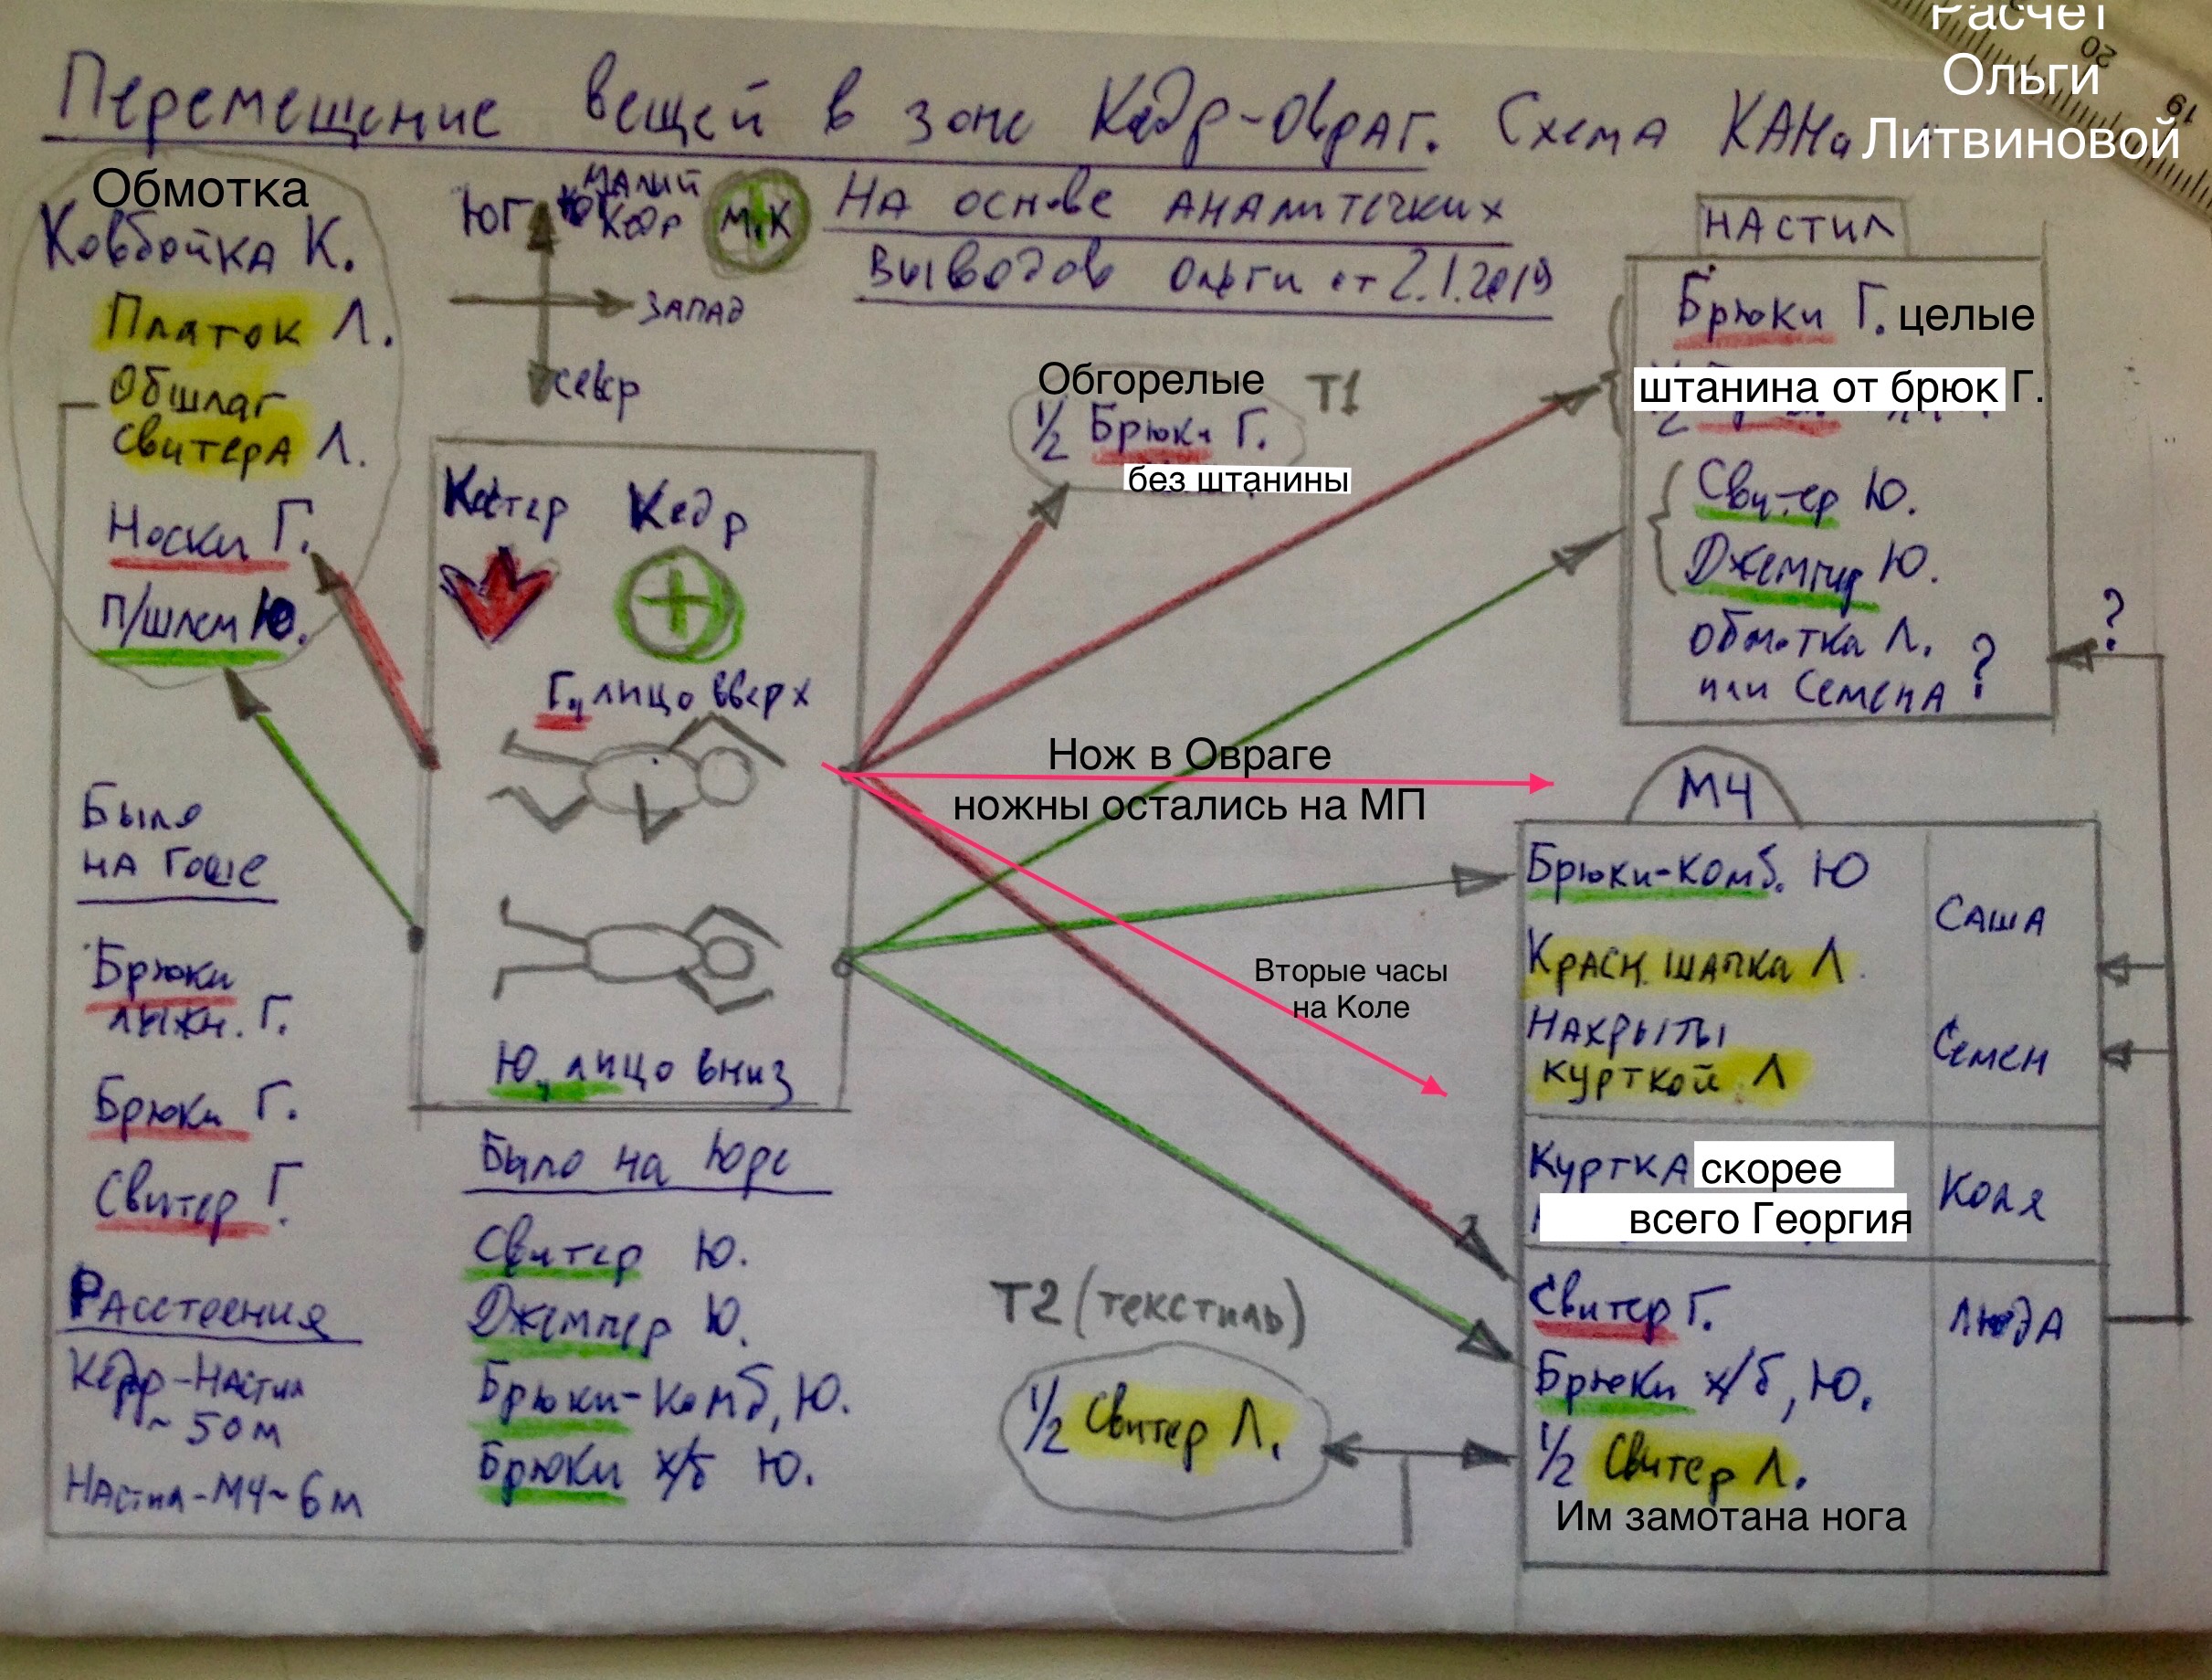 Расчет
Ольги
Литвиновой
20
19
Перемещение вещей в зоне Кедр-Овраг. Схема КАНа
На основе аналитечких
выводов Ольги от 2.1.2019
Обмотка
Ковбойка К.
Платок Л.
Обшлаг
свитера Л.
Носки Г.
п/шлем Ю.
ЮГ
Малый
Кедр
М.К
запад
север
Костер Кедр
Г., лицо вверх
Ю, лицо вниз
Было
на Гоше
Брюки
лыжн. Г.
Брюки Г.
Свитер Г.
Расстоения
Кедр-Настил
~ 50 м
Настил-М4~6м
Было на Юре
Свитер Ю.
Джемпер Ю.
Брюки-комб, Ю.
Брюки х/б Ю.
Обгорелые
1/2 Брюки Г.
без штанины
Т1
Нож в Овраге
ножны остались на МП
Вторые часы
на Коле
Т2 (текстиль)
1/2 Свитер Л.
НАСТИЛ
Брюки Г. целые
штанина от брюк Г.
Свитер Ю.
Джемпер Ю.
обмотка Л.
или Семена ?
?
М4
Брюки-комб. Ю
Красн. шапка Л.
Саша
Накрыты
курткой Л
Семен
Куртка скорее
всего Георгия
Коля
Свитер Г.
Люда
Брюки х/б, Ю.
1/2 Свитер Л.
Им замотана нога